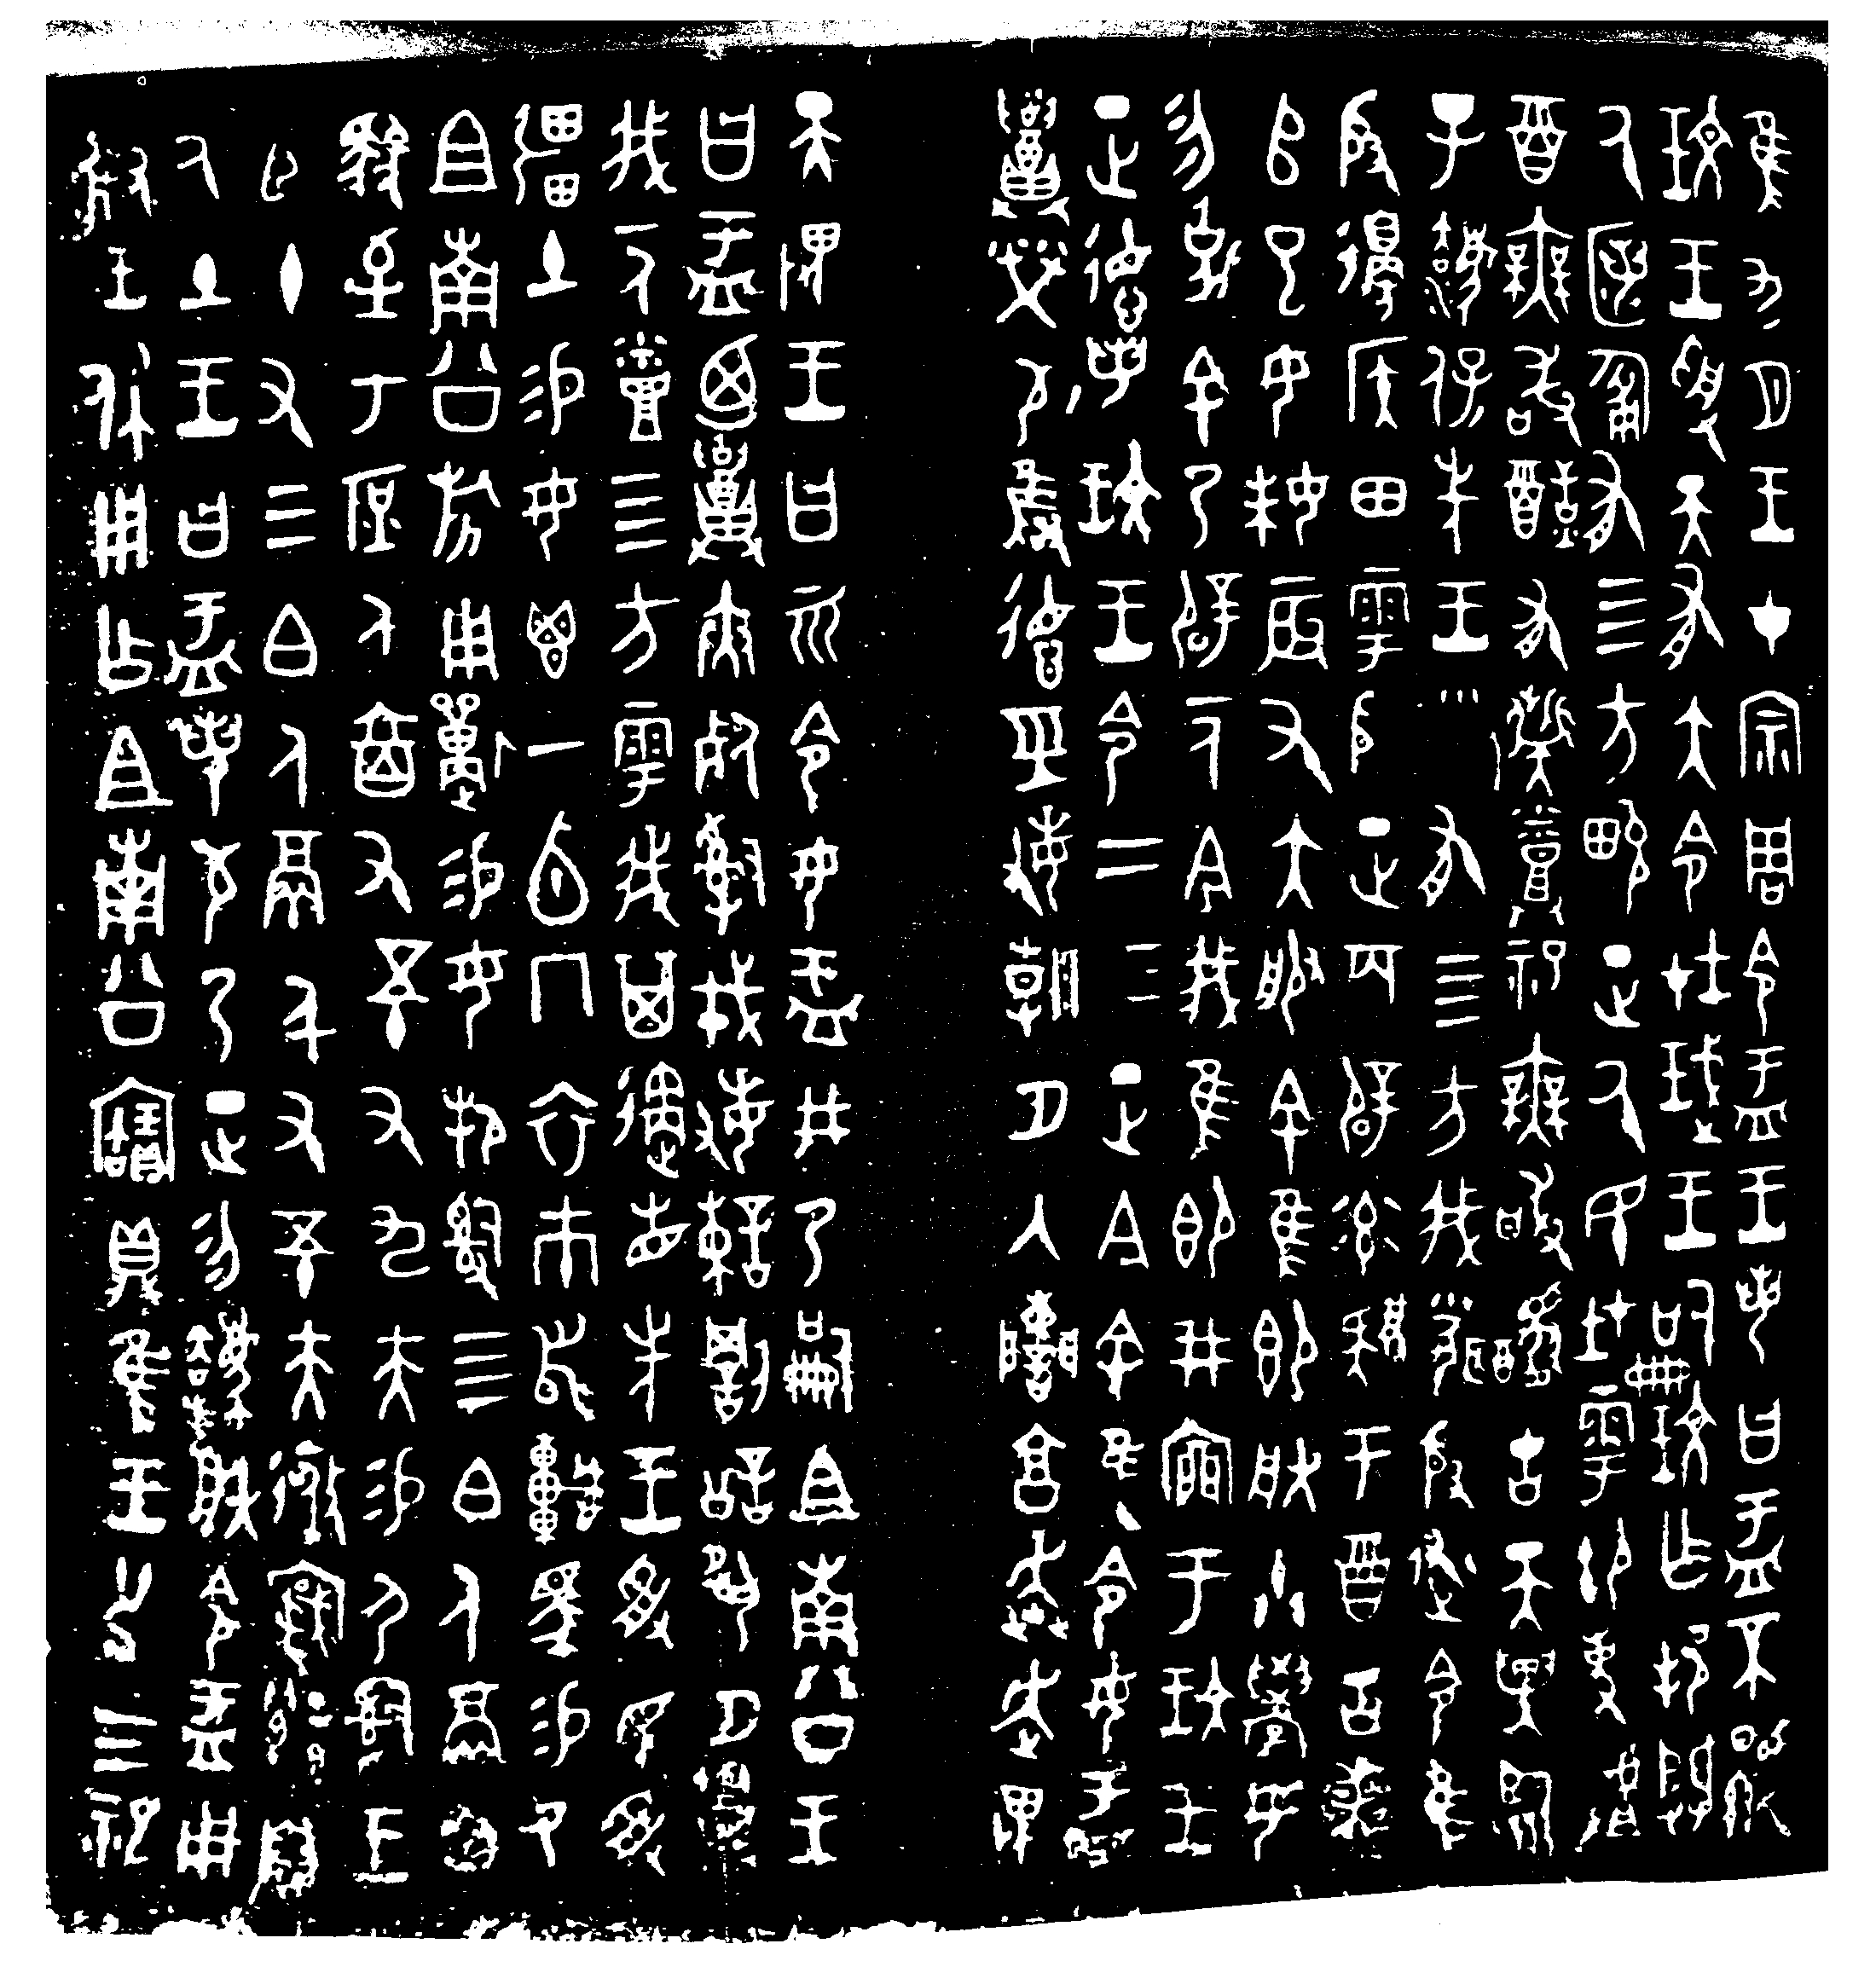 隹九月王才宗周令盂王若曰盂不顯
玟王受天有大令在珷王嗣玟乍邦闢
厥匿匍有四方畯正厥民在雩御事䖒
酉無敢酖有髭烝祀無敢䤕古天異臨
子灋保先王□有四方我聞殷述令隹
殷邊侯田雩殷正百辟率肄于酉古喪
𠂤巳女妹辰又大服余隹即朕小學女
勿𠣪余乃辟一人今我隹即井㐭于玟王
正德若玟王令二三正今余隹令女盂
召榮敬雝德巠敏朝夕入讕享奔走畏
天畏王曰𠀠令女盂井乃嗣且南公王
曰盂迺召夾死司戎敏諫罰訟夙夕召
我一人烝四方雩我其遹省先王受民受
彊土易女鬯一卣冂衣巿舄車馬易乃
且南公旂用狩易女邦司四白人鬲自
馭至于庶人六百又五十又九夫易尸司王
臣十又三白人鬲千又五十夫徝寽遷自
厥土王曰盂若敬乃正勿灋朕令盂用
對王休用乍且南公寶鼎隹王廿又三祀